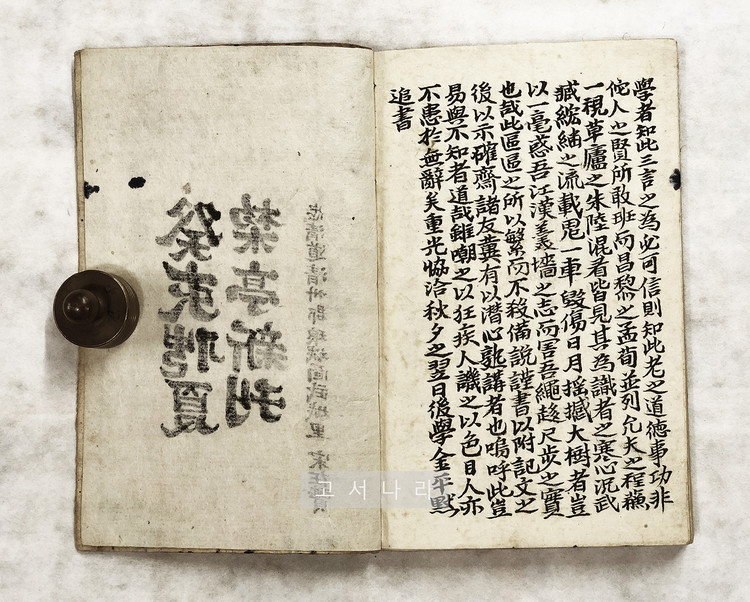 學者知此三言之爲必可信則知此老之道德事功非
佗人之賢所敢班而昌黎之孟荀並列允夫之程蘇
一視草廬之朱陸混看皆見其爲識者之寒心況武
之流載鬼一車毀傷日月搖撼大樹者豈
以一毫惑吾江漢羹墻之志而害吾繩趍尺步之實
也哉此區區之所以繁而不殺備說謹書以附記文之
後以示確齋諸友冀有以潛心孰講者也嗚呼此豈
易與不知者道哉雖嘲之以狂疾人譏之以色目人亦
不患於無辭矣重光協洽秋夕之翌日後學金平默
追書
癸未夏
亭新刊
忠清道清州郡琅城面武城里 宋
고서나라